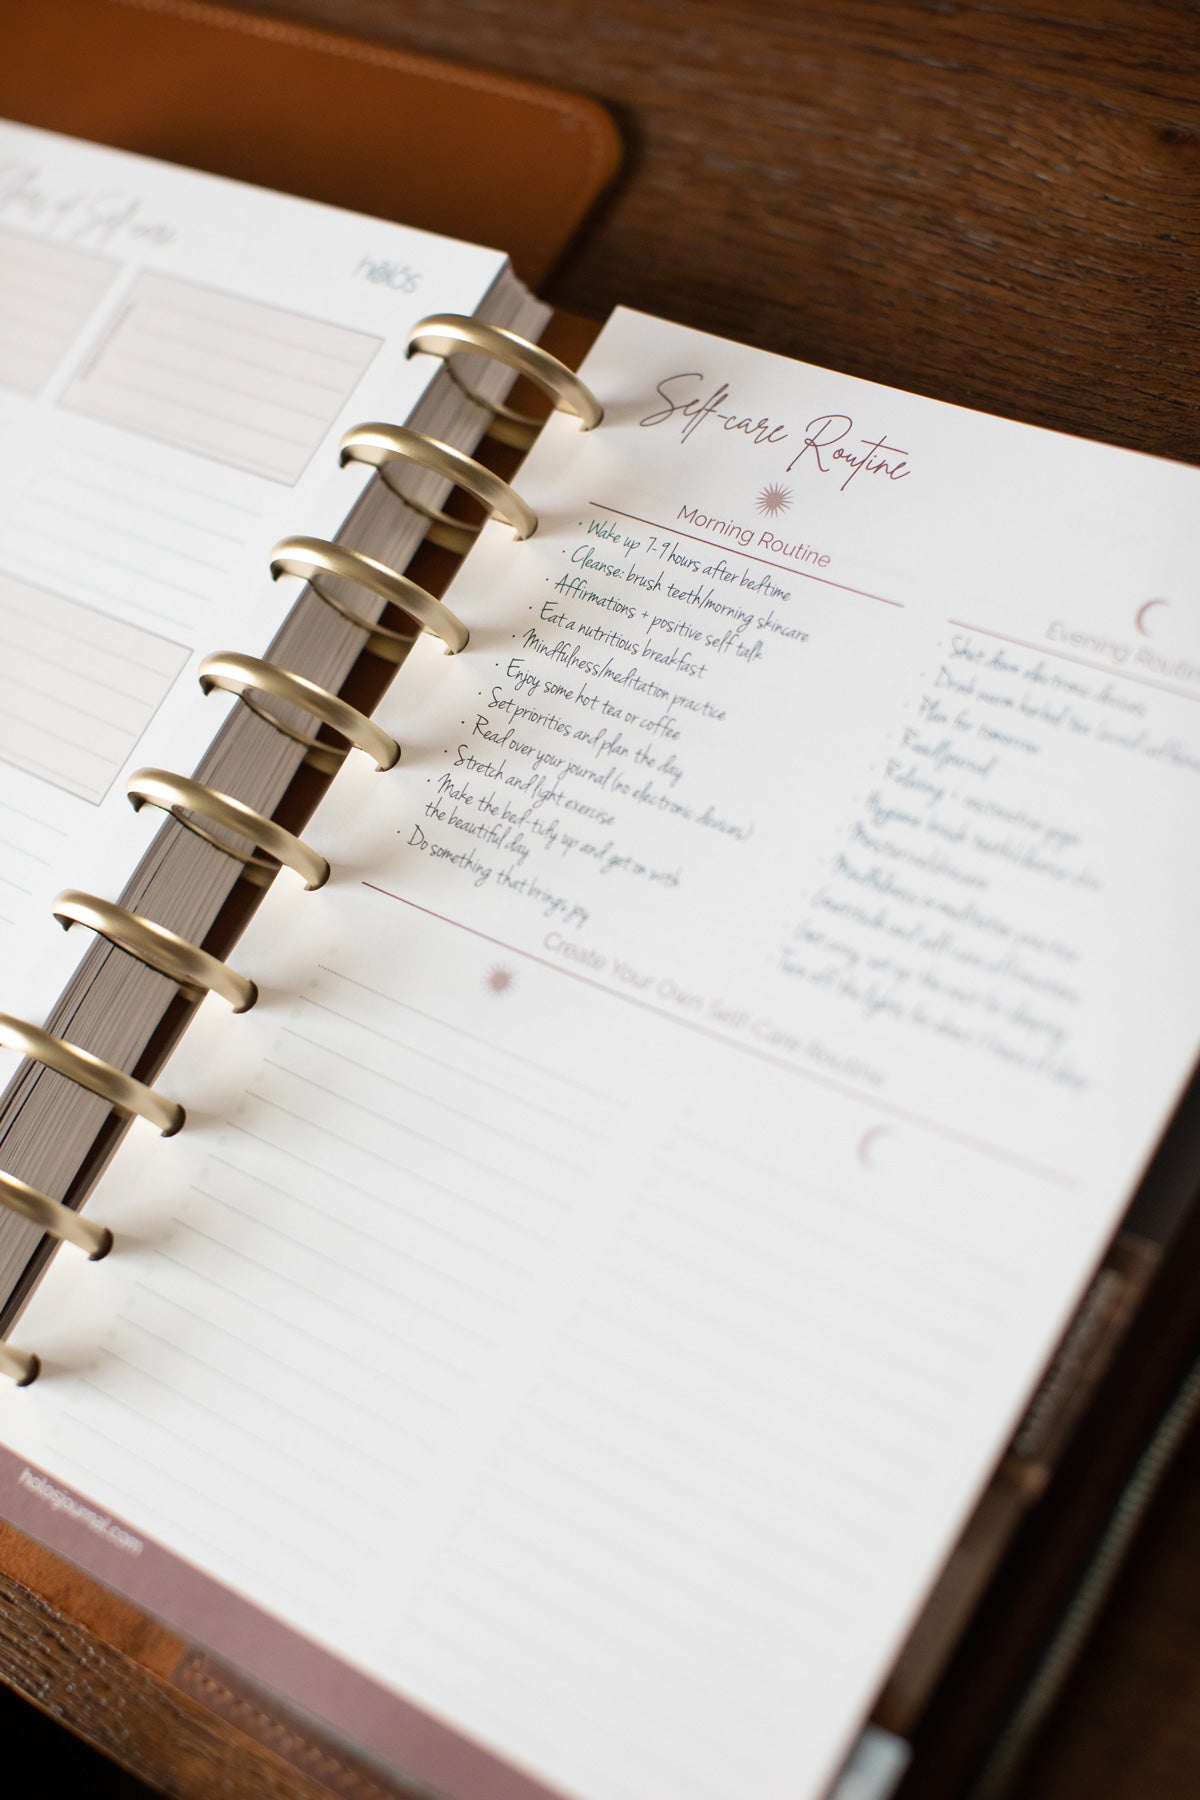 Self-care
hōlōs
Self-care Routine
Morning Routine
· Wake up 7-9 hours after bedtime
· Cleanse: brush teeth/morning skincare
· Affirmations + positive self talk
· Eat a nutritious breakfast
· Mindfulness/meditation practice
· Enjoy some hot tea or coffee
· Set priorities and plan the day
· Read over your journal (no electronic devices)
· Stretch and light exercise
· Make the bed-tidy up and get on with
the beautiful day
· Do something that brings joy
Evening Routine
· Shut down electronic devices
· Drink warm herbal tea
· Plan for tomorrow
· Read/journal
· Relaxing + restorative yoga
· Hygiene: brush teeth/
· Mindfulness or meditation practice
· Gratitude and self-care affirmations
· Turn off the lights for
Create Your Own Self-Care Routine
holosjournal.com